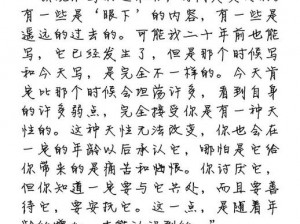 有一些是‘眼下’的内容，有一些是
遥远的过去的。可能我二十年前也能
写，它已经发生了，但是那个时候写
和今天写，是完全不一样的。今天肯
定比那个时候会坦荡许多，看到自身
的许多弱点，完全接受你是有一种天
性的。这种天性无法改变，你也会在
一定的年龄以后承认它，哪怕是它给
你带来的是痛苦和悔恨。你讨厌它，
但你知道一定要与它共处，而且要善
待它，要安抚它。这一点，是随着年